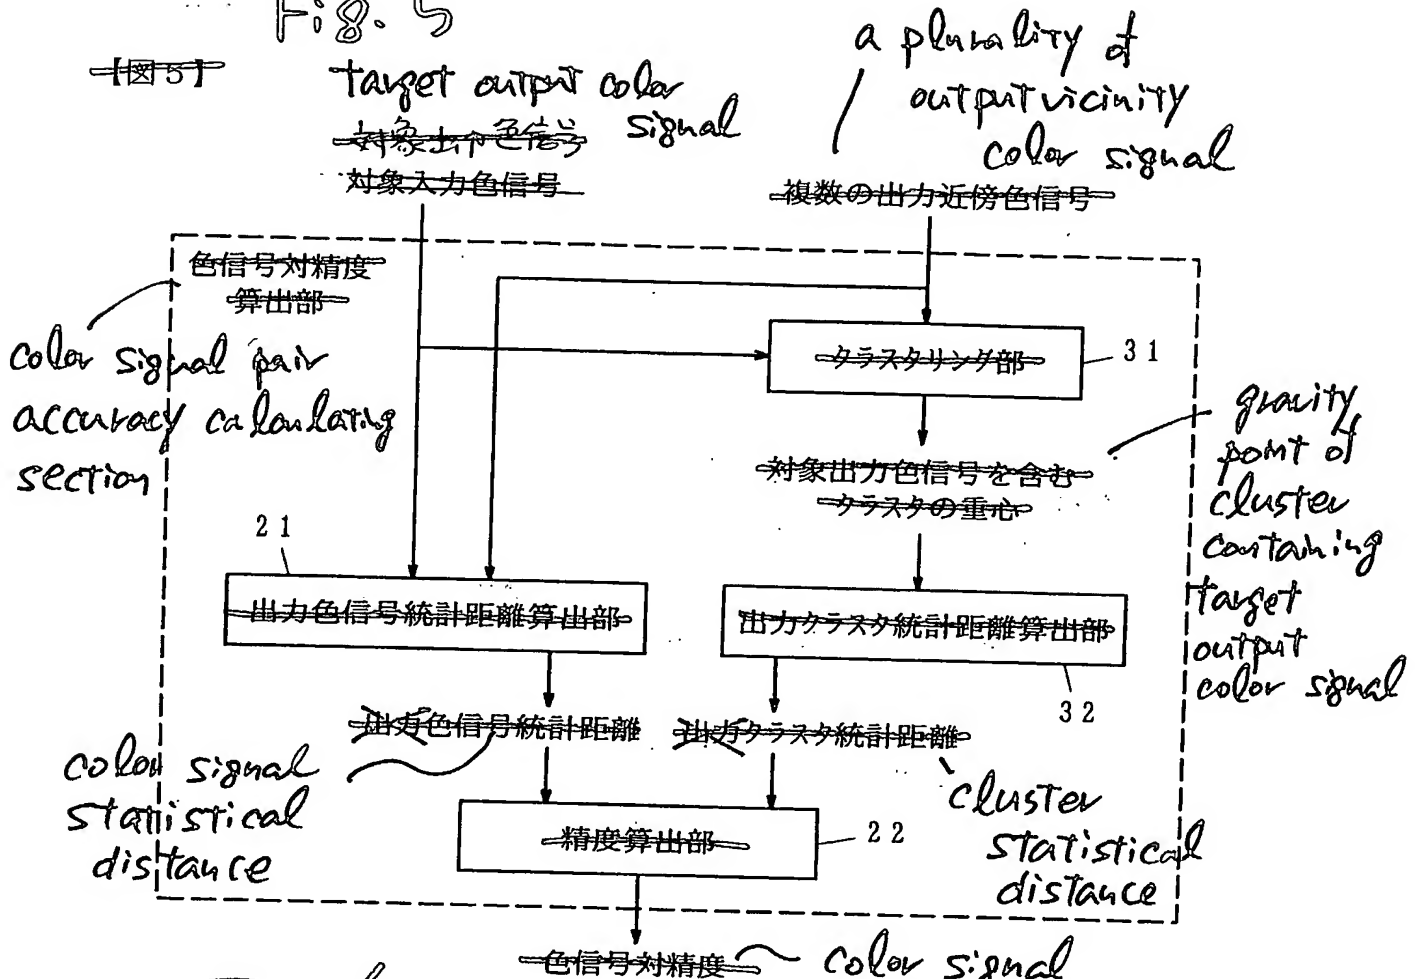 Fig. 5
【図5】
target output color
signal
対象出力色信号
対象入力色信号
a plurality of
output vicinity
color signal
複数の出力近傍色信号
色信号対精度
算出部
color signal pair
accuracy calculating
section
クラスタリング部
31
gravity
point of
cluster
containing
target
output
color signal
対象出力色信号を含む
クラスタの重心
21
出力色信号統計距離算出部
出力クラスタ統計距離算出部
32
出力色信号統計距離
出力クラスタ統計距離
color signal
statistical
distance
cluster
statistical
distance
精度算出部
22
色信号対精度
color signal